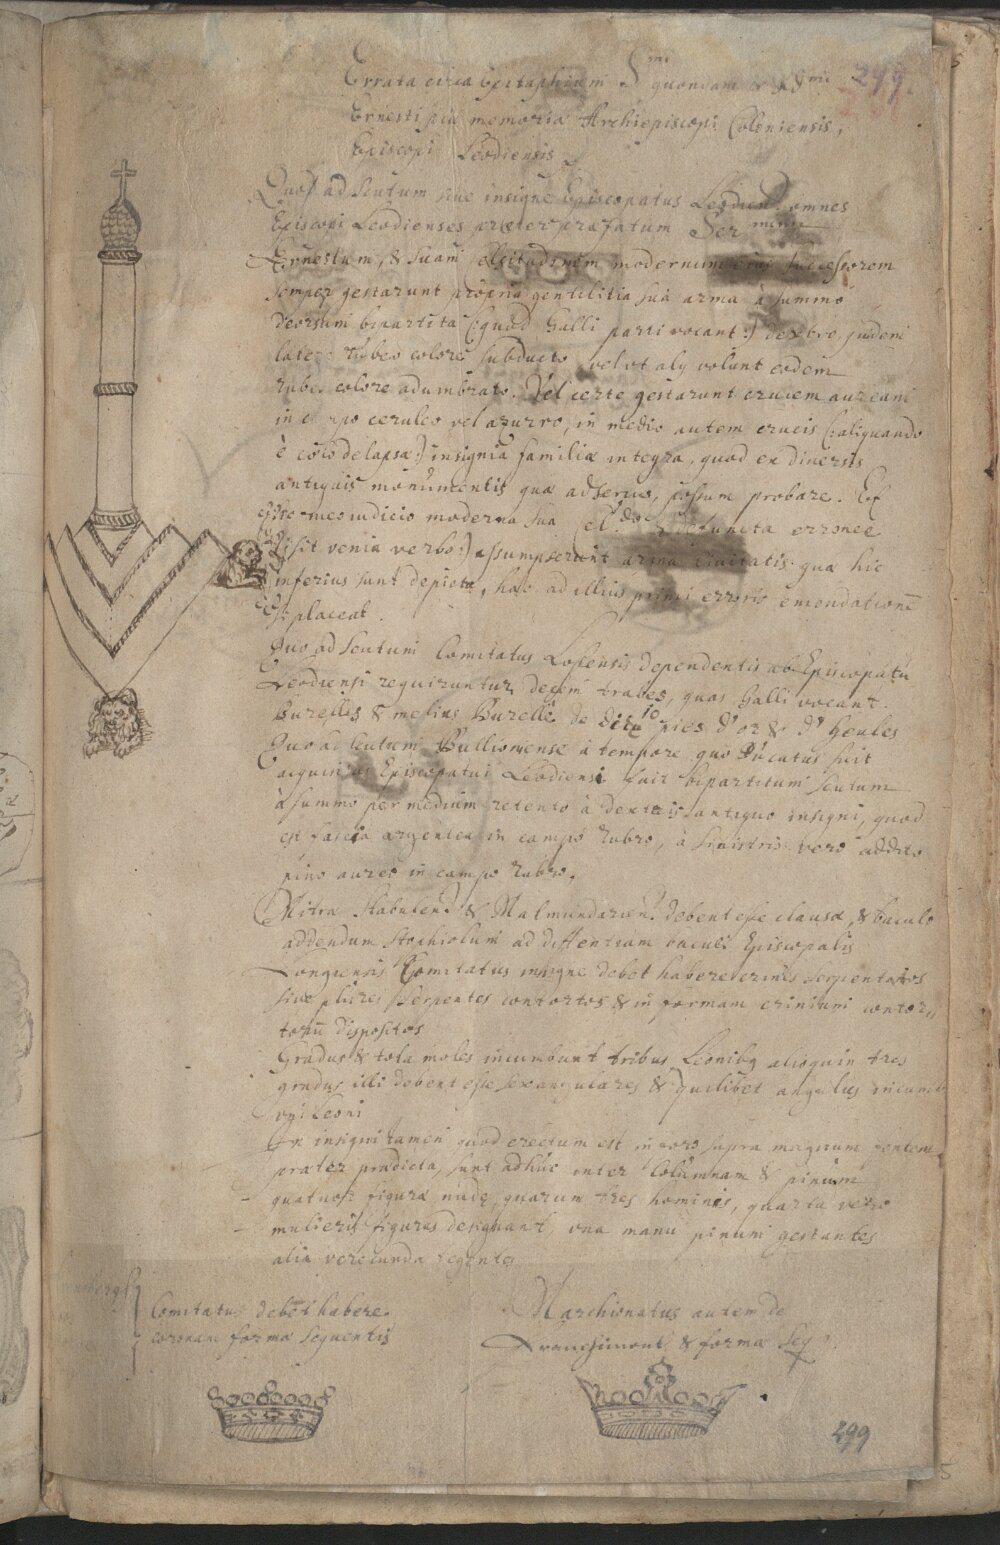 299.
Errata circa Epitaphium S.mi quondam & R.mi
Ernesti piæ memoriæ Archiepiscopi Coloniensis,
Episcopi Leodiensis
Quod ad Scutum sive insigne Episcopatus Leodien. omnes
Episcopi Leodienses præter præfatum Ser
Ernestum, & suam Celsitudinem modernum eius successorem
semper gestarunt propria gentilitia sua arma à summo
deorsum bipartita (: quod Galli parti vocant :) dextro
latere rubeo colore subducto vel ut alij volunt eodem
rubeo colore adumbrato. Vel certe gestarunt crucem auream
in campo ceruleo vel azurro, in medio autem crucis (: aliquando
è delapsa :) insignia familiæ integra, quod ex diversis
antiquis monumentis quæ adservo, possum probare.
meo iudicio moderna sua Cel.do defuncta erronee
(: sit venia verbo :) assumpserunt arma civitatis quæ hic
inferius sunt depicta, hæc ad illius primi erroris emendationē
si placeat.
Quo ad Scutum Comitatus Lossensis dependentis ab Episcopatu
Leodiensi requiruntur decem trabes, quas Galli vocant
Burelles & melius Burellé de dix 10 pies d'or & d' Geules
Quo ad scutum Bullionense à tempore quo Ducatus fuit
acquisitus Episcopatui Leodiensi fuit bipartitum scutum
à summo per medium retento à dextris antiquo insigni, quod
est fascia argentea in campo rubro, à sinistris vero addito
pino aureo in campo rubro.
Mitræ Stabulen. & Malmundarien. debent esse clausæ, & baculo
addendum stochiolum ad differentiam baculi Episcopalis
Longiensis Comitatus insigne debet habere crines serpentarios
sive plures serpentes contortos & in formam crinium contor
torū dispositos
Gradus & tota moles incumbunt tribus Leonibq alioquin tres
gradus illi debent esse sexangulares & quilibet angulus incumb
uni Leoni
In insigni tamen quod erectum est in foro supra magnum fontem
præter prædicta, sunt adhuc inter Columnam & pinum
quatuor figuræ nudę, quarum tres hominis, quarta vero
mulieris figuras designant, una manu pinum gestantes
alia verecunda tegentes
Comitatus debet habere
coronam formæ sequentis
Marchionatus autem de
Franchimont & formæ seq
299